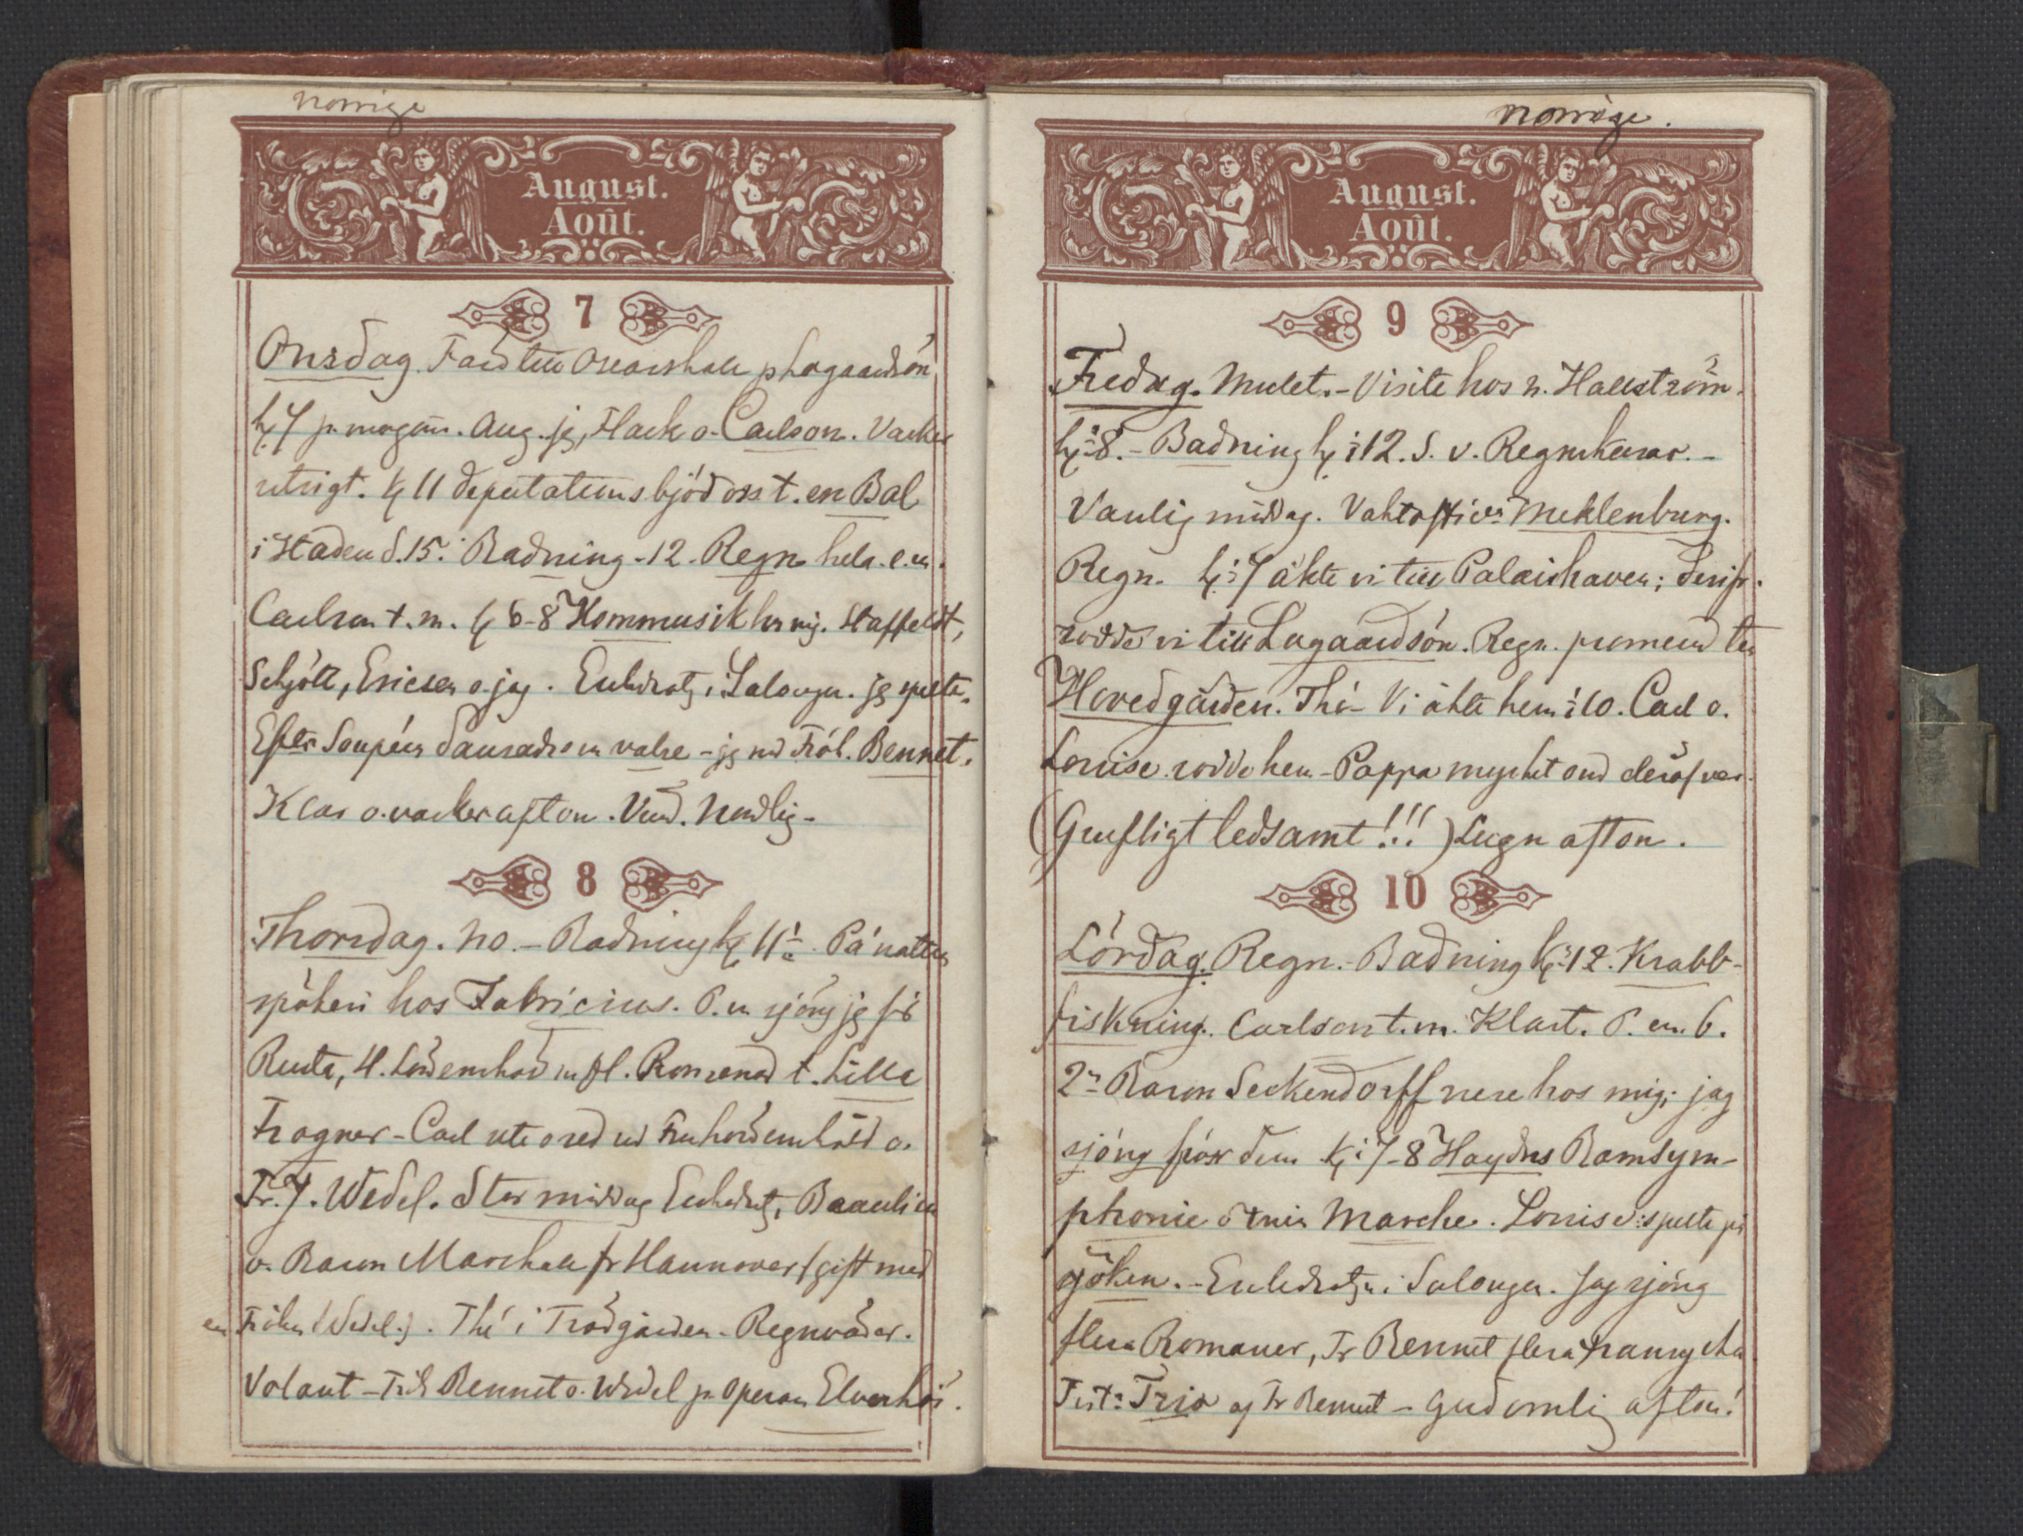 Norrige
August.
Août.
7
Onsdag. Färd till Oscarshall p Lagaardsön
k. 7 p. morgon. Aug. jg, Flack o. Carlson. Vacker
utsigt. k 11 deputations bjöd oss t. en Bal
i Staden d. 15. Badning - 12. Regn hela e.m.
Carlson t. m. k 6-8 Hommusik hos mig. Staffeldt,
Schjött, Ericsen o. jag. Enkedrotg i Salongen. jg spelte.
Efter Soupéen dansades en valse - jg md Fröl. Bennet.
Klar o. vacker afton. Vind. Nordlig -
8
Thorsdag. NO. - Badning k 11 På natten
spökeri hos Fabricius. E.m sjöng jg för
Reuta, H. Löwenskiold m fl. Promenad t. Lilla
Frogner - Carl ute o red md Fru Lövenskiold o.
Fr. J. Wedel. Stor middag Enkedrotg,
o. Baron Marchall fr Hannover (gift med
en Fröken Wedel.). Thé i Trädgården. Regnväder.
Volant - Frök Bennet o. Wedel p. Operan Elverhöi.
Norrige.
August.
Août.
9
Fredag. Mulet. - Visite hos h. Hallström.
k: 8. - Badning k: 12. S. v. Regnskurar. -
Vanlig middag. Meklenburg.
Regn. k: 7 åkte vi till Palaishaven; derifr.
rodde vi till Lagaardsön. Regn. promenad till
Hovedgården. Thé - Vi åkte hem : 10. Carl o.
Louise rodde hem - Pappa mycket ond deröfver.
(Grufligt ledsamt!!!) Lugn afton.
10
Lördag. Regn. - Badning k: 12. Krabb-
fiskning. Carlson t. m. Klart. E. m. 6.
2ne Baron Seckendorff nere hos mig; jag
sjöng för dem k: 7-8 Haydns Barnsym-
phonie o min Marche. Louise spelte på
göken. - Enkedrotg i Salongen. Jag sjöng
flera Romanser, Fr Bennet flera franska
Fist: Trio af Fr Bennet - Gudomlig afton!